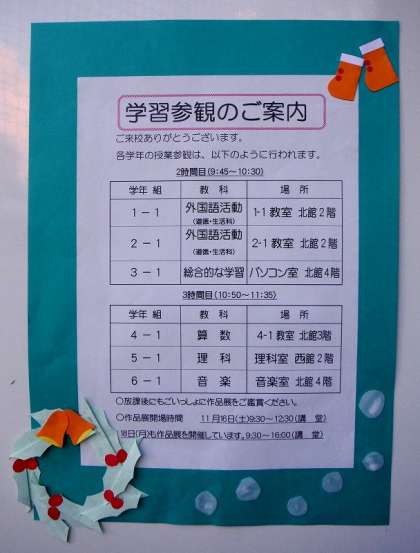 学習参観のご案内
ご来校ありがとうございます。
各学年の授業参観は、以下のように行われます。
2時間目(9:45～10:30)
学年 組 教 科 場 所
1－1 外国語活動 (道徳・生活科) 1-1教室 北館2階
2－1 外国語活動 (道徳・生活科) 2-1教室 北館2階
3－1 総合的な学習 パソコン室 北館4階
3時間目(10:50～11:35)
学年 組 教 科 場 所
4－1 算 数 4-1教室 北館3階
5－1 理 科 理科室 西館2階
6－1 音 楽 音楽室 北館4階
○放課後にもごいっしょに作品展をご鑑賞ください。
○作品展開場時間 11月16日(土)9:30～12:30(講 堂)
18日(月)も作品展を開催しています。9:30～16:00(講 堂)